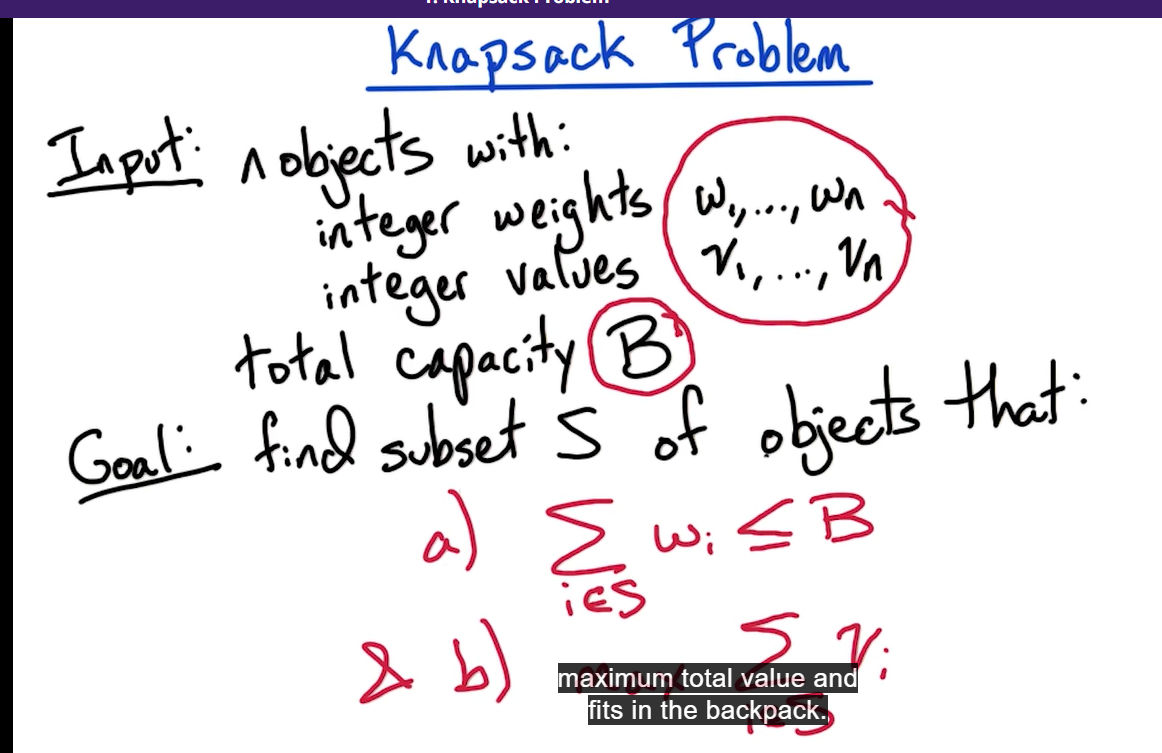 1. Knapsack Problem
Knapsack Problem
Input: n objects with:
integer weights w₁,..., wn
integer values v₁,..., vn
total capacity B
Goal: find subset S of objects that:
a) ∑ wi ≤ B
i∈S
& b) max ∑ vi
i∈S
maximum total value and
fits in the backpack.